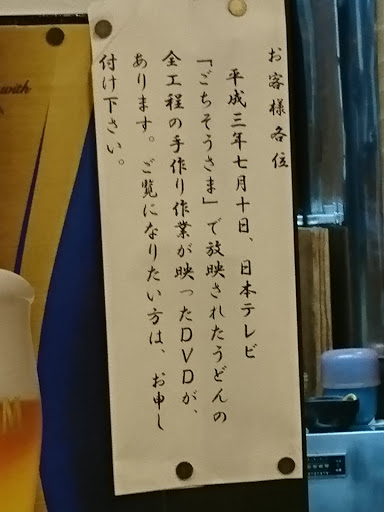 お客様各位
平成三年七月十日、日本テレビ
「ごちそうさま」で放映されたうどんの
全工程の手作り作業が映ったDVDが、
あります。ご覧になりたい方は、お申し
付け下さい。
with